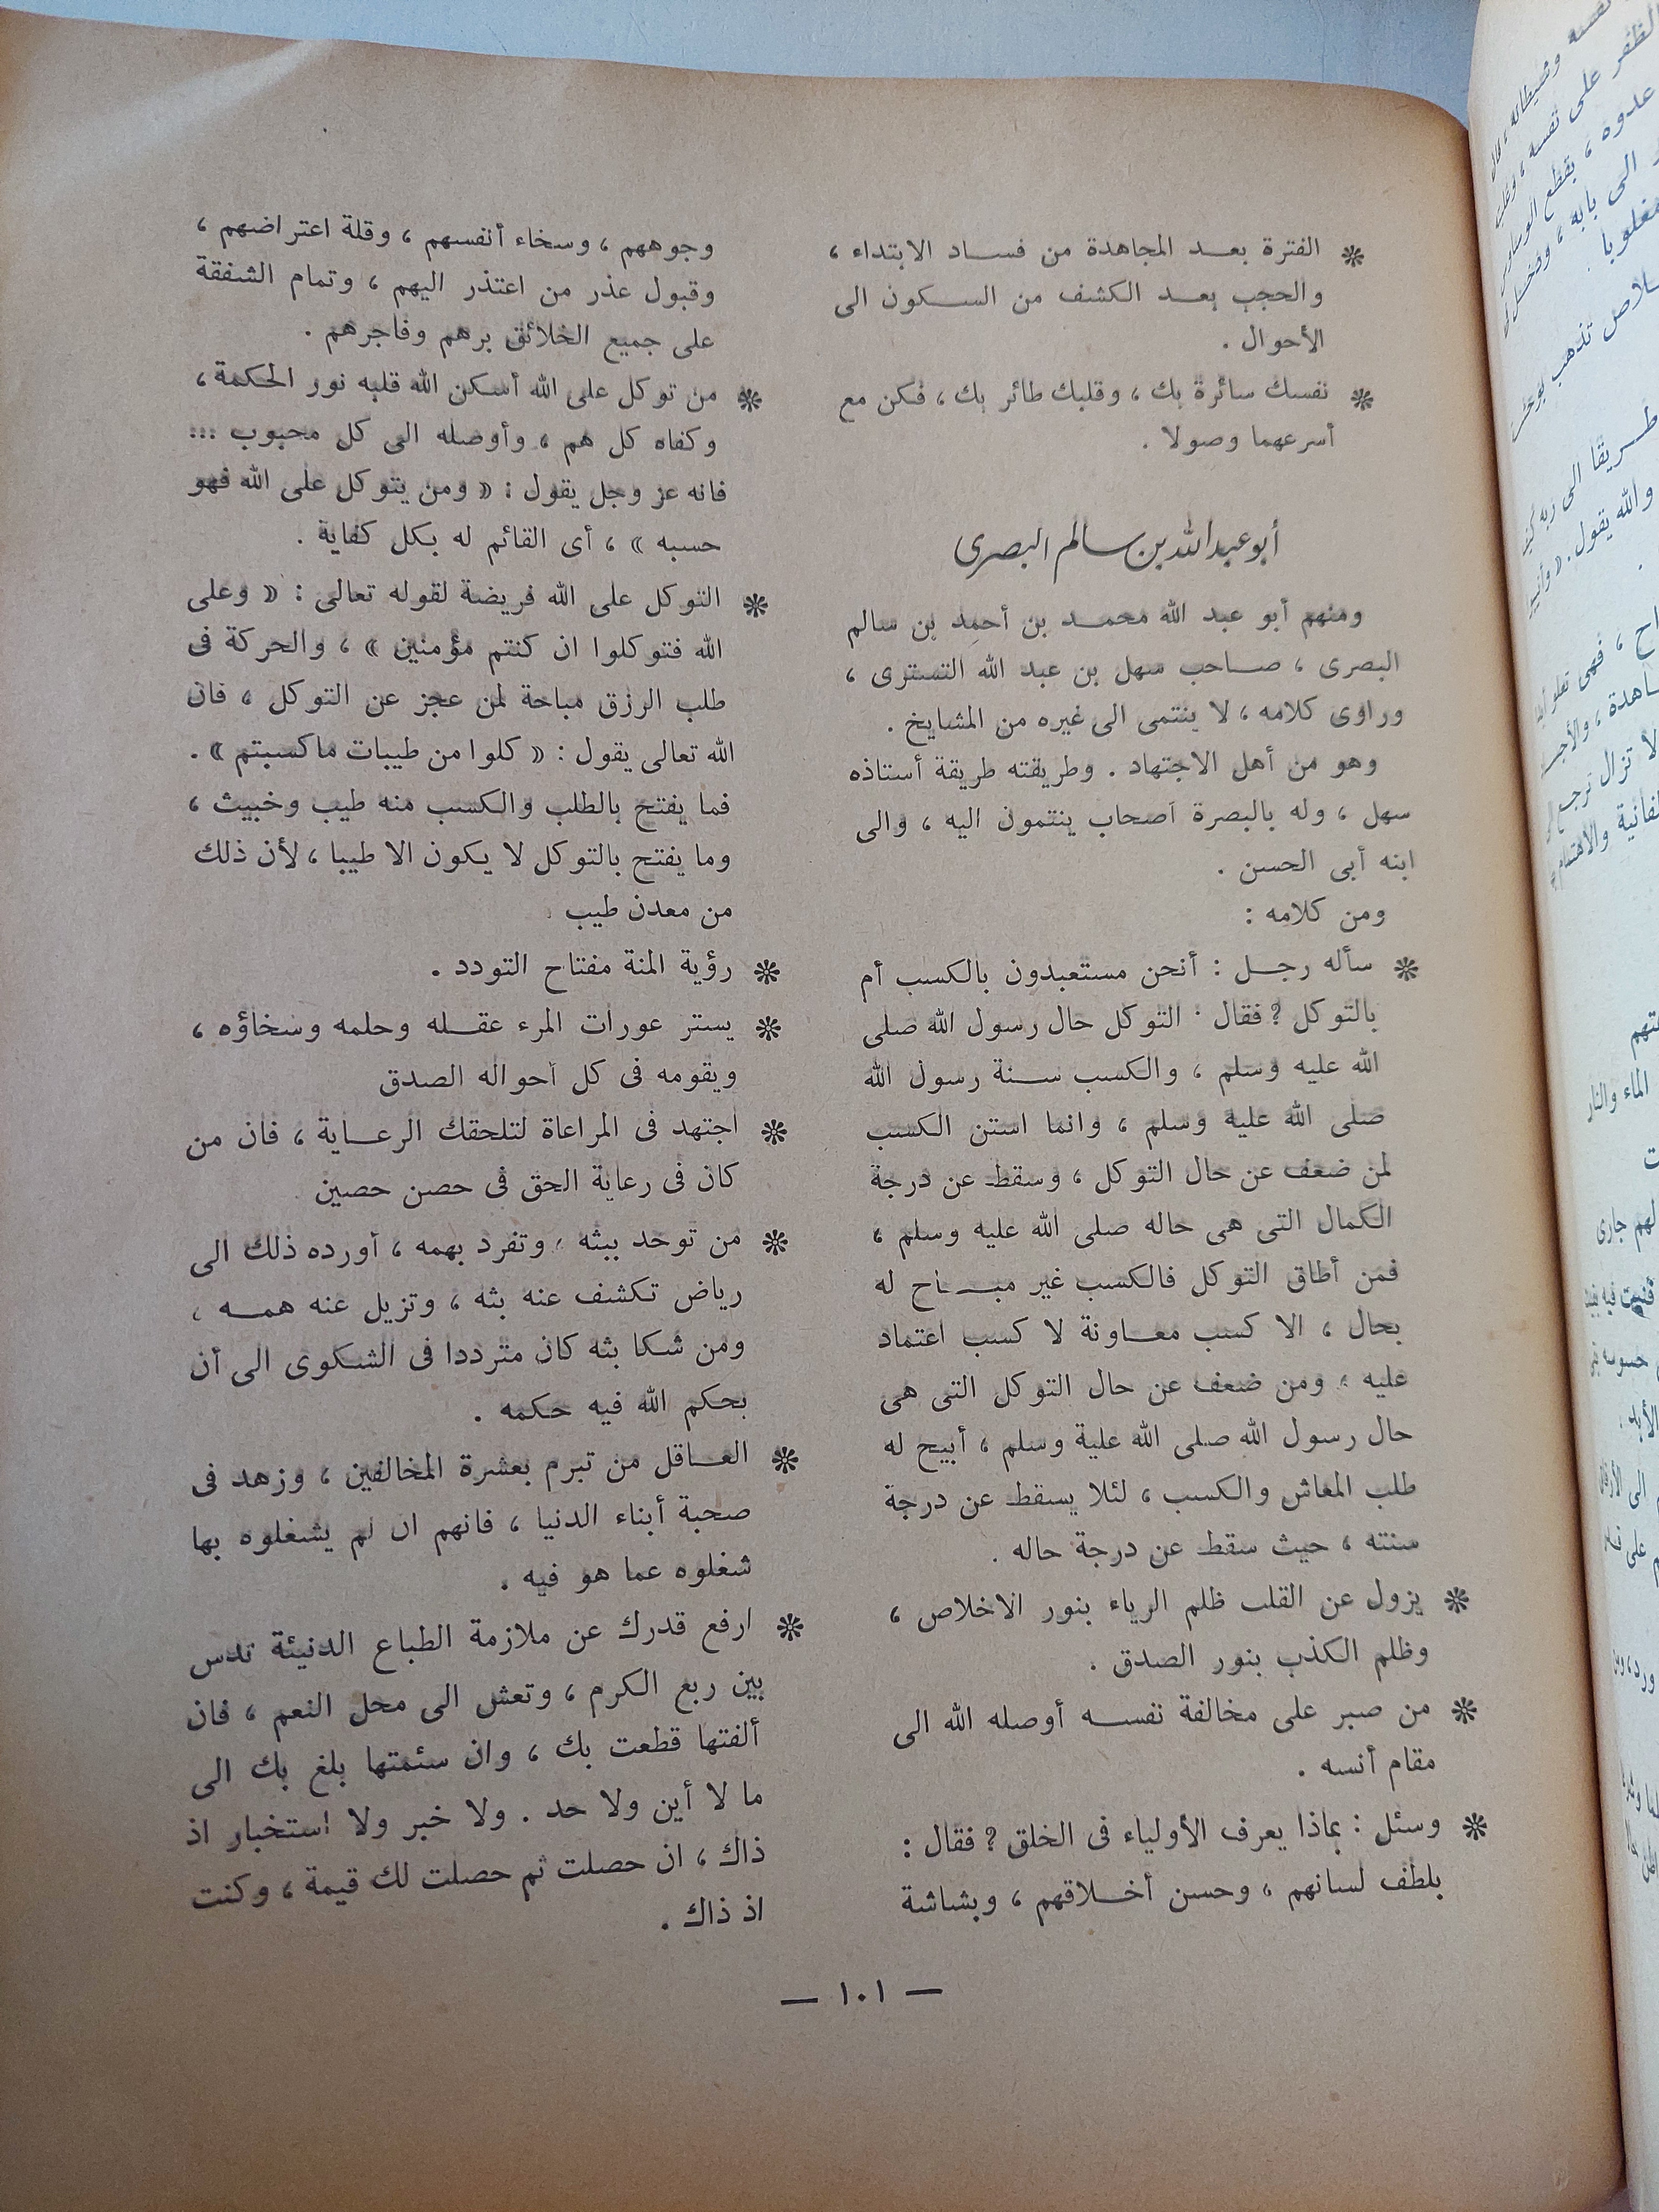 * الفترة بعد المجاهدة من فساد الابتداء ،
والحجب بعد الكشف من السكون الى
الأحوال .
* نفسك سائرة بك ، وقلبك طائر بك ، فكن مع
أسرعهما وصولا .
أبو عبد الله بن سالم البصرى
ومنهم أبو عبد الله محمد بن أحمد بن سالم
البصرى ، صاحب سهل بن عبد الله التسترى ،
وراوى كلامه ، لا ينتمى الى غيره من المشايخ .
وهو من أهل الاجتهاد . وطريقته طريقة أستاذه
سهل ، وله بالبصرة أصحاب ينتمون اليه ، والى
ابنه أبى الحسن .
ومن كلامه :
* سأله رجل : أنحن مستعبدون بالكسب أم
بالتوكل ? فقال : التوكل حال رسول الله صلى
الله عليه وسلم ، والكسب سنة رسول الله
صلى الله عليه وسلم ، وانما استن الكسب
لمن ضعف عن حال التوكل ، وسقط عن درجة
الكمال التى هى حاله صلى الله عليه وسلم ،
فمن أطاق التوكل فالكسب غير مباح له
بحال ، الا كسب معاونة لا كسب اعتماد
عليه ، ومن ضعف عن حال التوكل التى هى
حال رسول الله صلى الله علية وسلم ، أبيح له
طلب المعاش والكسب ، لئلا يسقط عن درجة
سنته ، حيث سقط عن درجة حاله .
* يزول عن القلب ظلم الرياء بنور الاخلاص ،
وظلم الكذب بنور الصدق .
* من صبر على مخالفة نفسه أوصله الله الى
مقام أنسه .
* وسئل : بماذا يعرف الأولياء فى الخلق ? فقال :
بلطف لسانهم ، وحسن أخلاقهم ، وبشاشة
وجوههم ، وسخاء أنفسهم ، وقلة اعتراضهم ،
وقبول عذر من اعتذر اليهم ، وتمام الشفقة
على جميع الخلائق برهم وفاجرهم .
* من توكل على الله أسكن الله قلبه نور الحكمة ،
وكفاه كل هم ، وأوصله الى كل محبوب ...
فانه عز وجل يقول : « ومن يتوكل على الله فهو
حسبه » ، أى القائم له بكل كفاية .
* التوكل على الله فريضة لقوله تعالى : « وعلى
الله فتوكلوا ان كنتم مؤمنين » ، والحركة فى
طلب الرزق مباحة لمن عجز عن التوكل ، فان
الله تعالى يقول : « كلوا من طيبات ماكسبتم » .
فما يفتح بالطلب والكسب منه طيب وخبيث ،
وما يفتح بالتوكل لا يكون الا طيبا ، لأن ذلك
من معدن طيب .
* رؤية المنة مفتاح التودد .
* يستر عورات المرء عقله وحلمه وسخاؤه ،
ويقومه فى كل أحواله الصدق
* اجتهد فى المراعاة لتلحقك الرعاية ، فان من
كان فى رعاية الحق فى حصن حصين
* من توحد ببثه ، وتفرد بهمه ، أورده ذلك الى
رياض تكشف عنه بثه ، وتزيل عنه همه ،
ومن شكا بثه كان مترددا فى الشكوى الى أن
يحكم الله فيه حكمه .
* العاقل من تبرم بعشرة المخالفين ، وزهد فى
صحبة أبناء الدنيا ، فانهم ان لم يشغلوه بها
شغلوه عما هو فيه .
* ارفع قدرك عن ملازمة الطباع الدنيئة تدس
بين ربع الكرم ، وتعش الى محل النعم ، فان
ألفتها قطعت بك ، وان سئمتها بلغ بك الى
ما لا أين ولا حد . ولا خبر ولا استخبار اذ
ذاك ، ان حصلت ثم حصلت لك قيمة ، وكنت
اذ ذاك .
— ١٠١ —